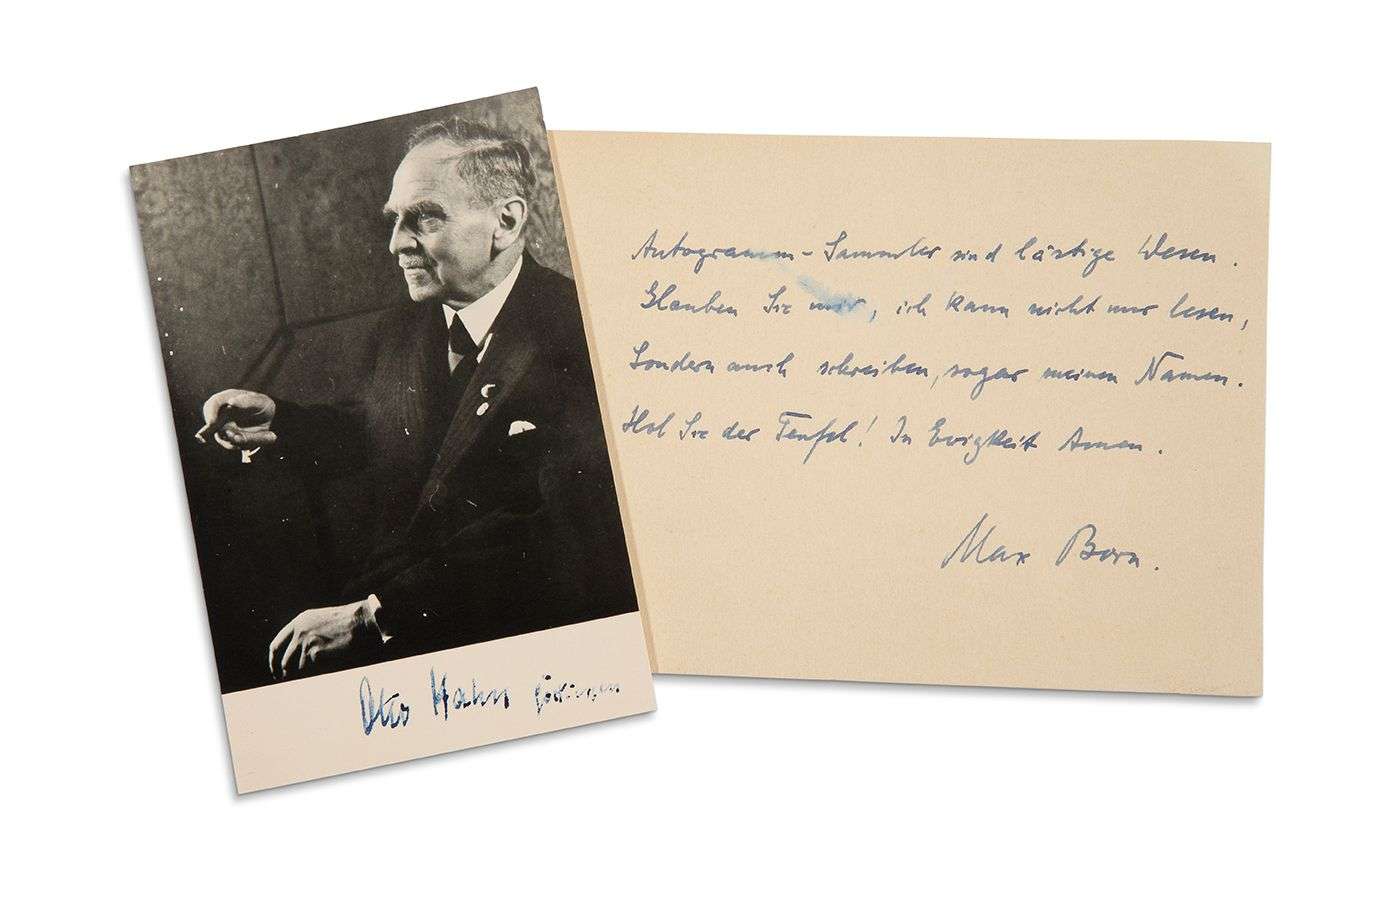 Otto Hahn Göttingen
Autogramm-Sammler sind lästige Wesen.
Glauben Sie mir, ich kann nicht nur lesen,
Sondern auch schreiben, sogar meinen Namen.
Hol Sie der Teufel! In Ewigkeit Amen.
Max Born.